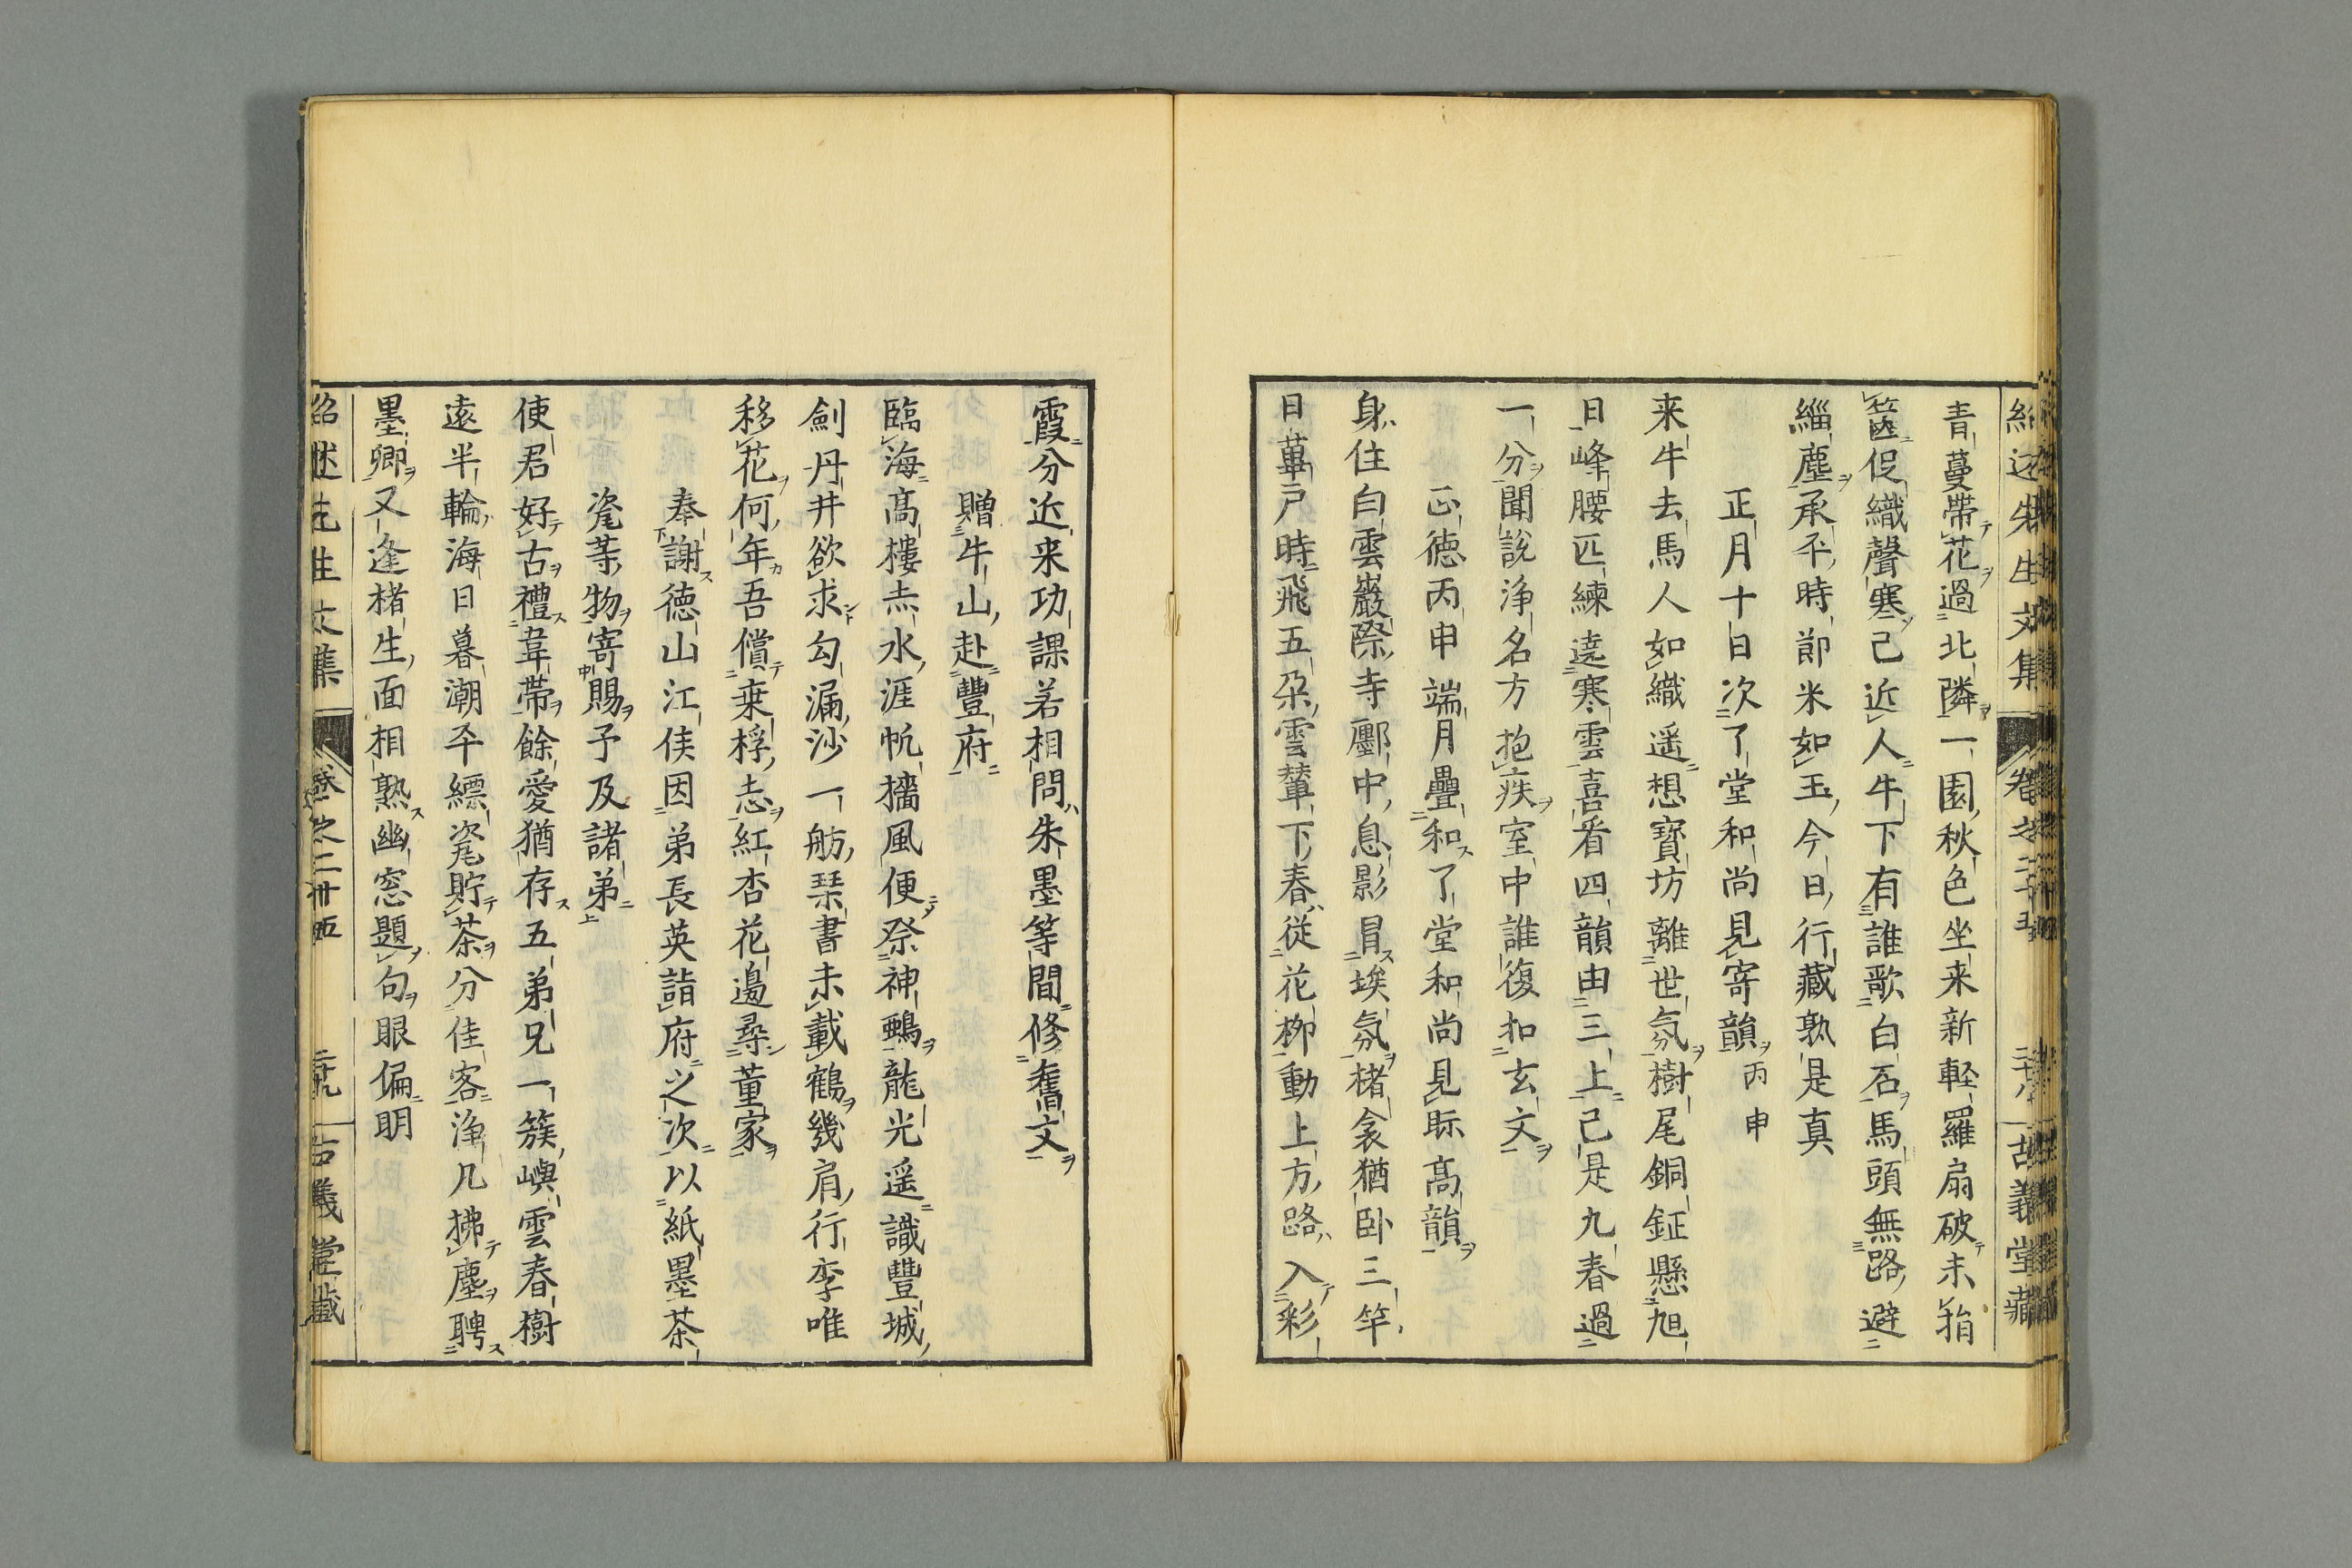 紹述先生文集 卷之二十五 二十八 古義堂藏
青蔓帶花過北隣一園秋色坐来新輕羅扇破未㧞
莚促織聲寒已近人牛下有誰歌白石馬頭無路避
緇塵承平時節米如玉今日行藏孰是真
正月十日次了堂和尚見寄韻 丙申
来牛去馬人如織遥想寳坊離世氛樹尾銅鉦懸旭
日峰腰匹練遶寒雲喜看四韻由三上已是九春過
一分聞說浄名方抱疾室中誰復扣玄文
正德丙申端月疊和了堂和尚見眎髙韻
身住白雲巖際寺鄽中息影冒埃氛楮衾猶卧三竿
日蓽戸時飛五朶雲輦下春従花柳動上方路入彩
霞分近来功課若相問朱墨等間修舊文
贈牛山赴豐府
臨海髙樓赤水涯帆檣風便祭神鵶龍光遥識豐城
劍丹井欲求勾漏沙一舫琹書未載鶴幾肩行李唯
移花何年吾償乗桴志紅杏花邊尋董家
奉謝德山江侯因弟長英詣府之次以紙墨茶
瓷等物寄賜予及諸弟
使君好古禮韋帶餘愛猶存五弟兄一簇嶼雲春樹
遠半輪海日暮潮平縹瓷貯茶分佳客浄几拂塵聘
墨卿又逢楮生面相熟幽窓題句眼偏明
紹述先生文集 卷之二十五 二十九 古義堂藏